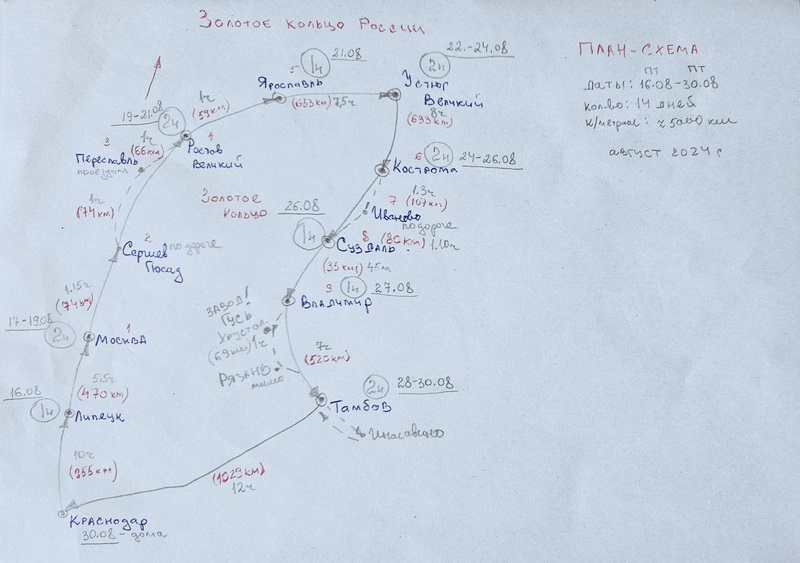 Золотое кольцо России
План-схема
пт пт
даты: 16.08-30.08
колво: 14 дней
к/метраж: ≈ 5000 км
август 2024 г
22.-24.08
2н
21.08
1н
5
Ярославль
Устюг
Великий
8ч
(633км)
(633км) 7,5ч
1ч
(59км)
19-21.08
2н
3
1ч
(66км)
4
Ростов
Великий
Переславль
проездом
6
2н
24-26.08
Кострома
1ч
(74км)
Золотое
кольцо
26.08
1н
7
1.3ч
(107км)
Иваново
по дороге
8
Суздаль
(80км)
1.10ч
2
Сергиев
Посад
по дороге
(35км) 45м
1.15ч
(74км)
9
1н
27.08
Владимир
завод!
Гусь
Хрустол.
(69км) 1ч
17-19.08
2н
1
Москва
7ч
(520км)
Рязань
мимо
5.5ч
(470км)
2н
28-30.08
Тамбов
16.08
1н
Липецк
10ч
(955км)
(1029км)
12ч
Краснодар
30.08 - дома